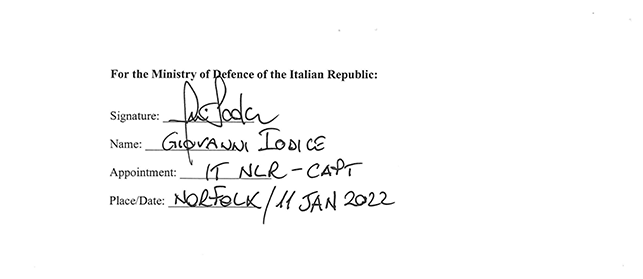 For the Ministry of Defence of the Italian Republic:
Signature:
Name: GIOVANNI IODICE
Appointment: IT NLR - CAPT
Place/Date: NORFOLK / 11 JAN 2022